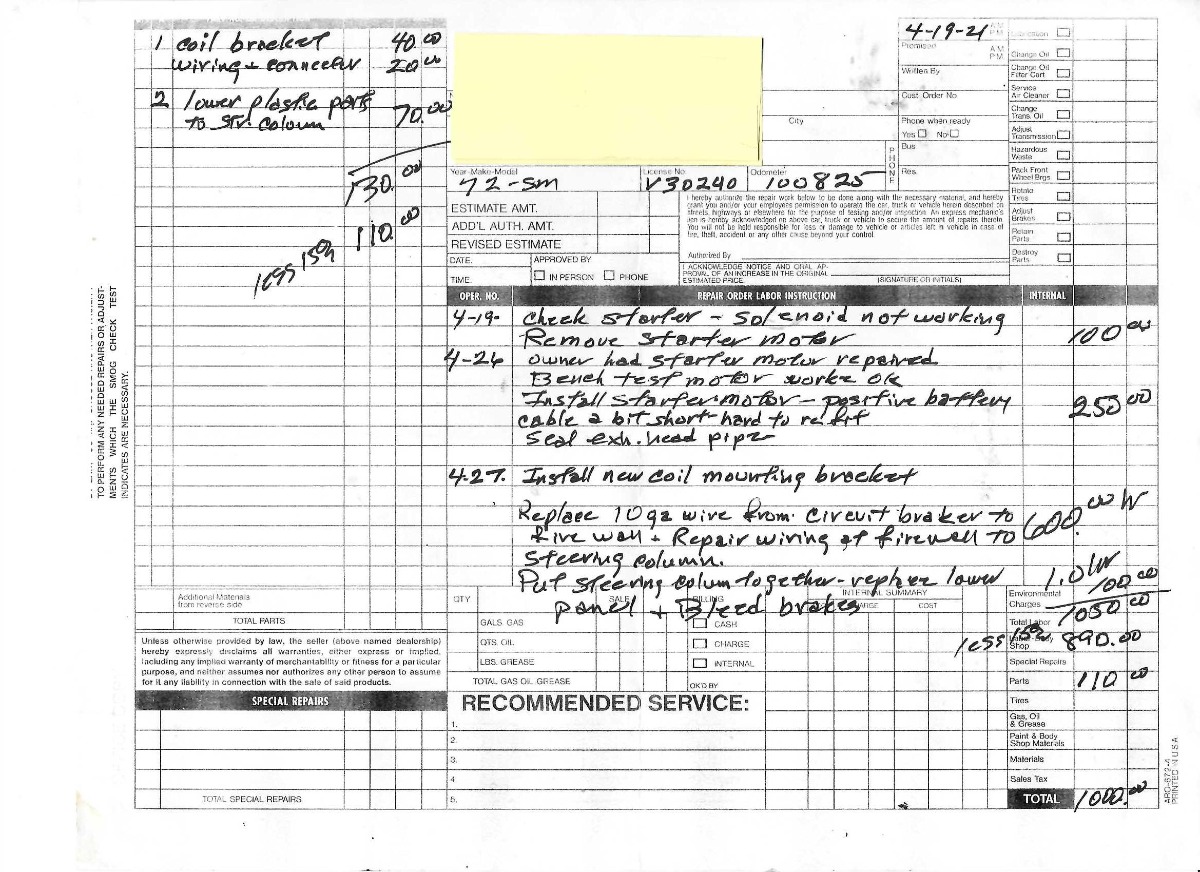 1 coil bracket 40 00
wiring + connector 20 00
2 lower plastic parts
to Str. coloum 70.00
130.00
less 15% 110.00
4-19-21 AM PM
Promised AM PM
Written By
Cust. Order No.
Phone when ready
Yes No
City
PHONE
Bus
Res.
Lubrication
Change Oil
Change Oil Filter Cart.
Service Air Cleaner
Change Trans. Oil
Adjust Transmission
Hazardous Waste
Pack Front Wheel Brgs
Rotate Tires
Adjust Brakes
Retain Parts
Destroy Parts
Year-Make-Model License No. Odometer
72-SM V30240 100825
ESTIMATE AMT.
ADD'L AUTH. AMT.
REVISED ESTIMATE
DATE. APPROVED BY
TIME. IN PERSON PHONE
I hereby authorize the repair work below to be done along with the necessary material, and hereby
grant you and/or your employees permission to operate the car, truck or vehicle herein described on
streets, highways or elsewhere for the purpose of testing and/or inspection. An express mechanic's
lien is hereby acknowledged on above car, truck or vehicle to secure the amount of repairs thereto.
You will not be held responsible for loss or damage to vehicle or articles left in vehicle in case of
fire, theft, accident or any other cause beyond your control.
Authorized By
I ACKNOWLEDGE NOTICE AND ORAL AP-
PROVAL OF AN INCREASE IN THE ORIGINAL
ESTIMATED PRICE. (SIGNATURE OR INITIALS)
TO PERFORM ANY NEEDED REPAIRS OR ADJUST-
MENTS WHICH THE SMOG CHECK TEST
INDICATES ARE NECESSARY.
OPER. NO. REPAIR ORDER LABOR INSTRUCTION INTERNAL
4-19- Check starter - Solenoid not working
Remove starter motor 100 00
4-26 owner had starter motor repaired
Bench test motor works ok
Install starter motor - positive battery 250 00
cable a bit short-hard to refit
Seal exh. head pipe
4-27. Install new coil mounting bracket
Replace 10 ga wire from circuit braker to 600.00
fire wall + Repair wiring at firewall to
steering column.
Put steering colum together - replace lower 1.0 hr 100 00
panel + Bleed brakes
Additional Materials
from reverse side
TOTAL PARTS
QTY SALE BILLING INTERNAL SUMMARY
CHARGE COST
GALS. GAS
QTS. OIL
LBS. GREASE
TOTAL GAS OIL GREASE
CASH
CHARGE
INTERNAL
OK'D BY
Environmental Charges
Total Labor 1050 00
less 15% Shop 890.00
Special Repairs
Parts 110 00
Tires
Gas, Oil & Grease
Paint & Body Shop Materials
Materials
Sales Tax
TOTAL 1000.00
Unless otherwise provided by law, the seller (above named dealership)
hereby expressly disclaims all warranties, either express or implied,
including any implied warranty of merchantability or fitness for a particular
purpose, and neither assumes nor authorizes any other person to assume
for it any liability in connection with the sale of said products.
SPECIAL REPAIRS
TOTAL SPECIAL REPAIRS
RECOMMENDED SERVICE:
1.
2.
3.
4
5.
ARO-672-4
PRINTED IN U.S.A.